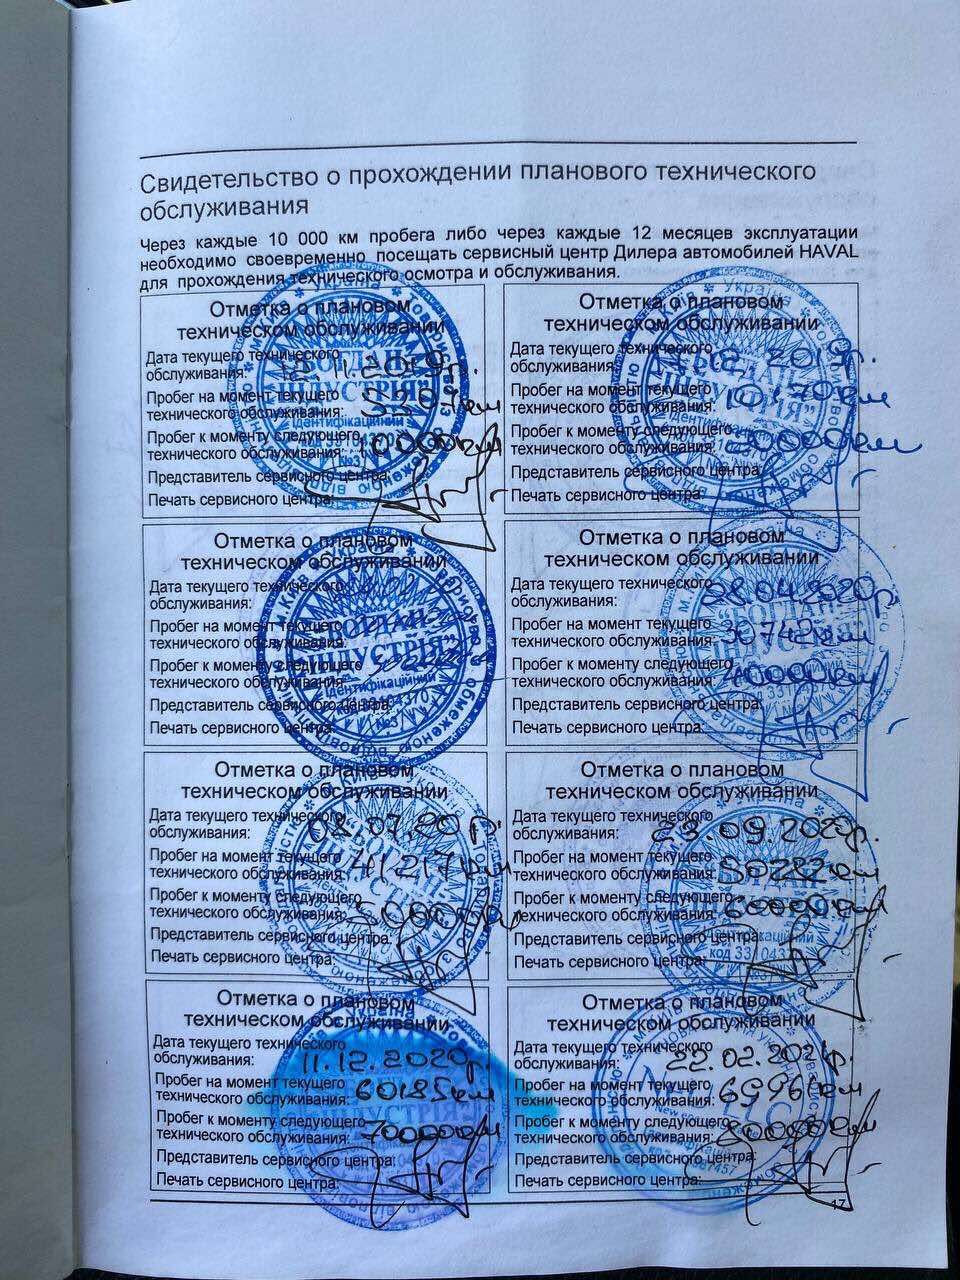 Свидетельство о прохождении планового технического
обслуживания
Через каждые 10 000 км пробега либо через каждые 12 месяцев эксплуатации
необходимо своевременно посещать сервисный центр Дилера автомобилей HAVAL
для прохождения технического осмотра и обслуживания.
Отметка о плановом
техническом обслуживании
Дата текущего технического
обслуживания: 11.2019г.
Пробег на момент текущего
технического обслуживания:
Пробег к моменту следующего
технического обслуживания: 10000км
Представитель сервисного центра:
Печать сервисного центра:
Отметка о плановом
техническом обслуживании
Дата текущего технического
обслуживания: 12.2019г.
Пробег на момент текущего
технического обслуживания:
Пробег к моменту следующего
технического обслуживания: 20000км
Представитель сервисного центра:
Печать сервисного центра:
Отметка о плановом
техническом обслуживании
Дата текущего технического
обслуживания:
Пробег на момент текущего
технического обслуживания:
Пробег к моменту следующего
технического обслуживания:
Представитель сервисного центра:
Печать сервисного центра:
Отметка о плановом
техническом обслуживании
Дата текущего технического
обслуживания: 28.04.2020г.
Пробег на момент текущего
технического обслуживания: 30742км
Пробег к моменту следующего
технического обслуживания: 40000км
Представитель сервисного центра:
Печать сервисного центра:
Отметка о плановом
техническом обслуживании
Дата текущего технического
обслуживания: 08.07.20г.
Пробег на момент текущего
технического обслуживания: 41217км
Пробег к моменту следующего
технического обслуживания: 50000км
Представитель сервисного центра:
Печать сервисного центра:
Отметка о плановом
техническом обслуживании
Дата текущего технического
обслуживания: 23.09.2020г.
Пробег на момент текущего
технического обслуживания: 50282км
Пробег к моменту следующего
технического обслуживания: 60000км
Представитель сервисного центра:
Печать сервисного центра:
Отметка о плановом
техническом обслуживании
Дата текущего технического
обслуживания: 11.12.2020г.
Пробег на момент текущего
технического обслуживания: 60185км
Пробег к моменту следующего
технического обслуживания: 70000км
Представитель сервисного центра:
Печать сервисного центра:
Отметка о плановом
техническом обслуживании
Дата текущего технического
обслуживания: 22.02.2021г.
Пробег на момент текущего
технического обслуживания: 69961км
Пробег к моменту следующего
технического обслуживания: 80000км
Представитель сервисного центра:
Печать сервисного центра:
17